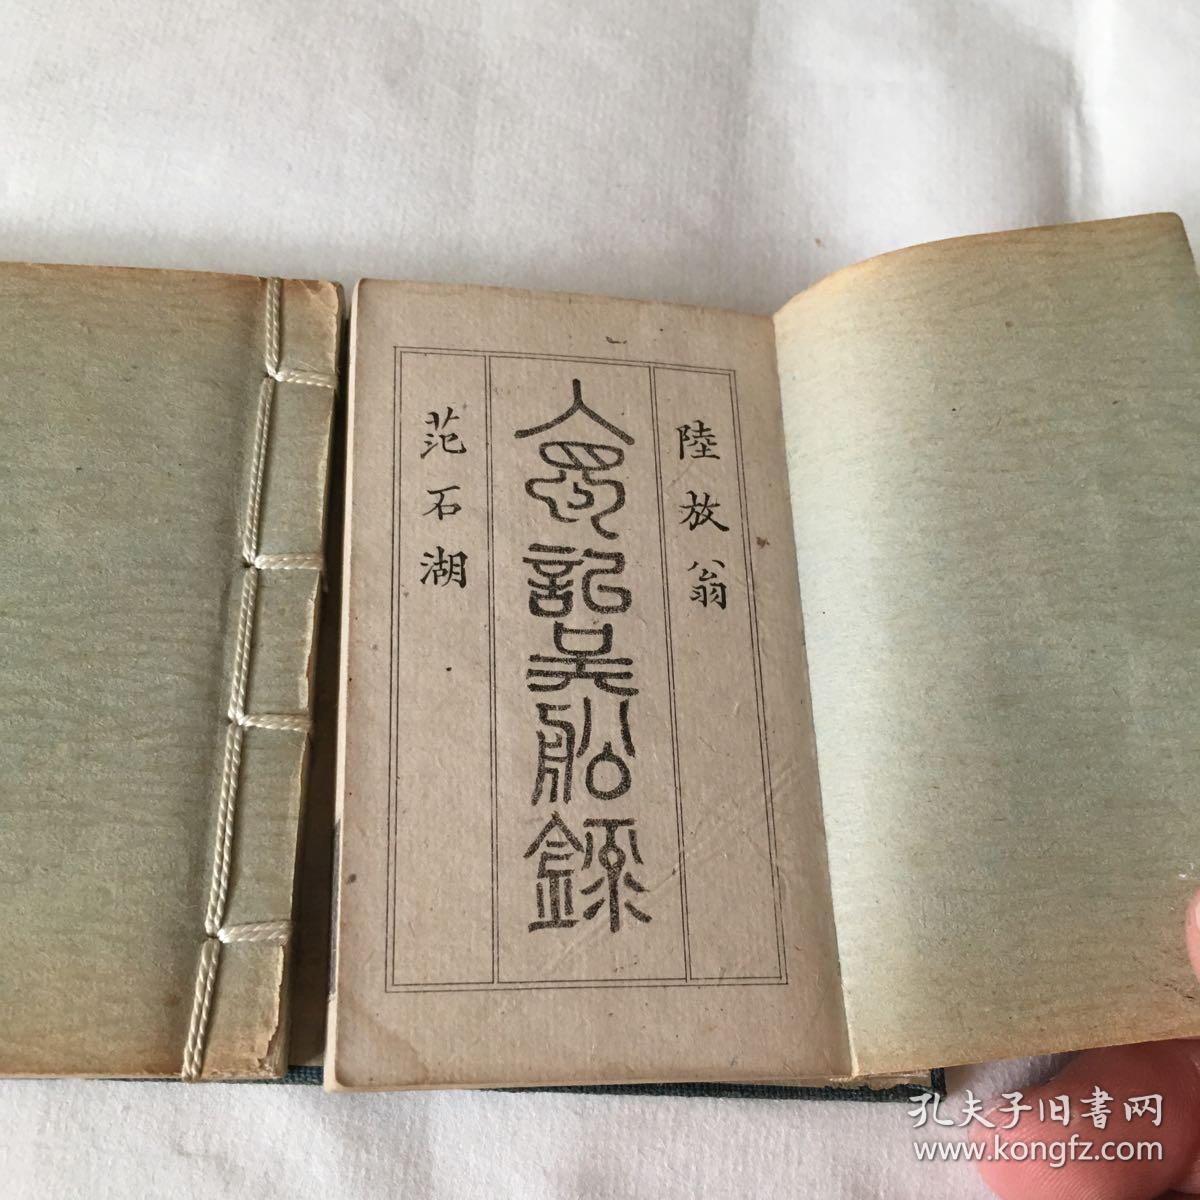 陸放翁
入蜀記吳船錄
范石湖
孔夫子旧書网
www.kongfz.com